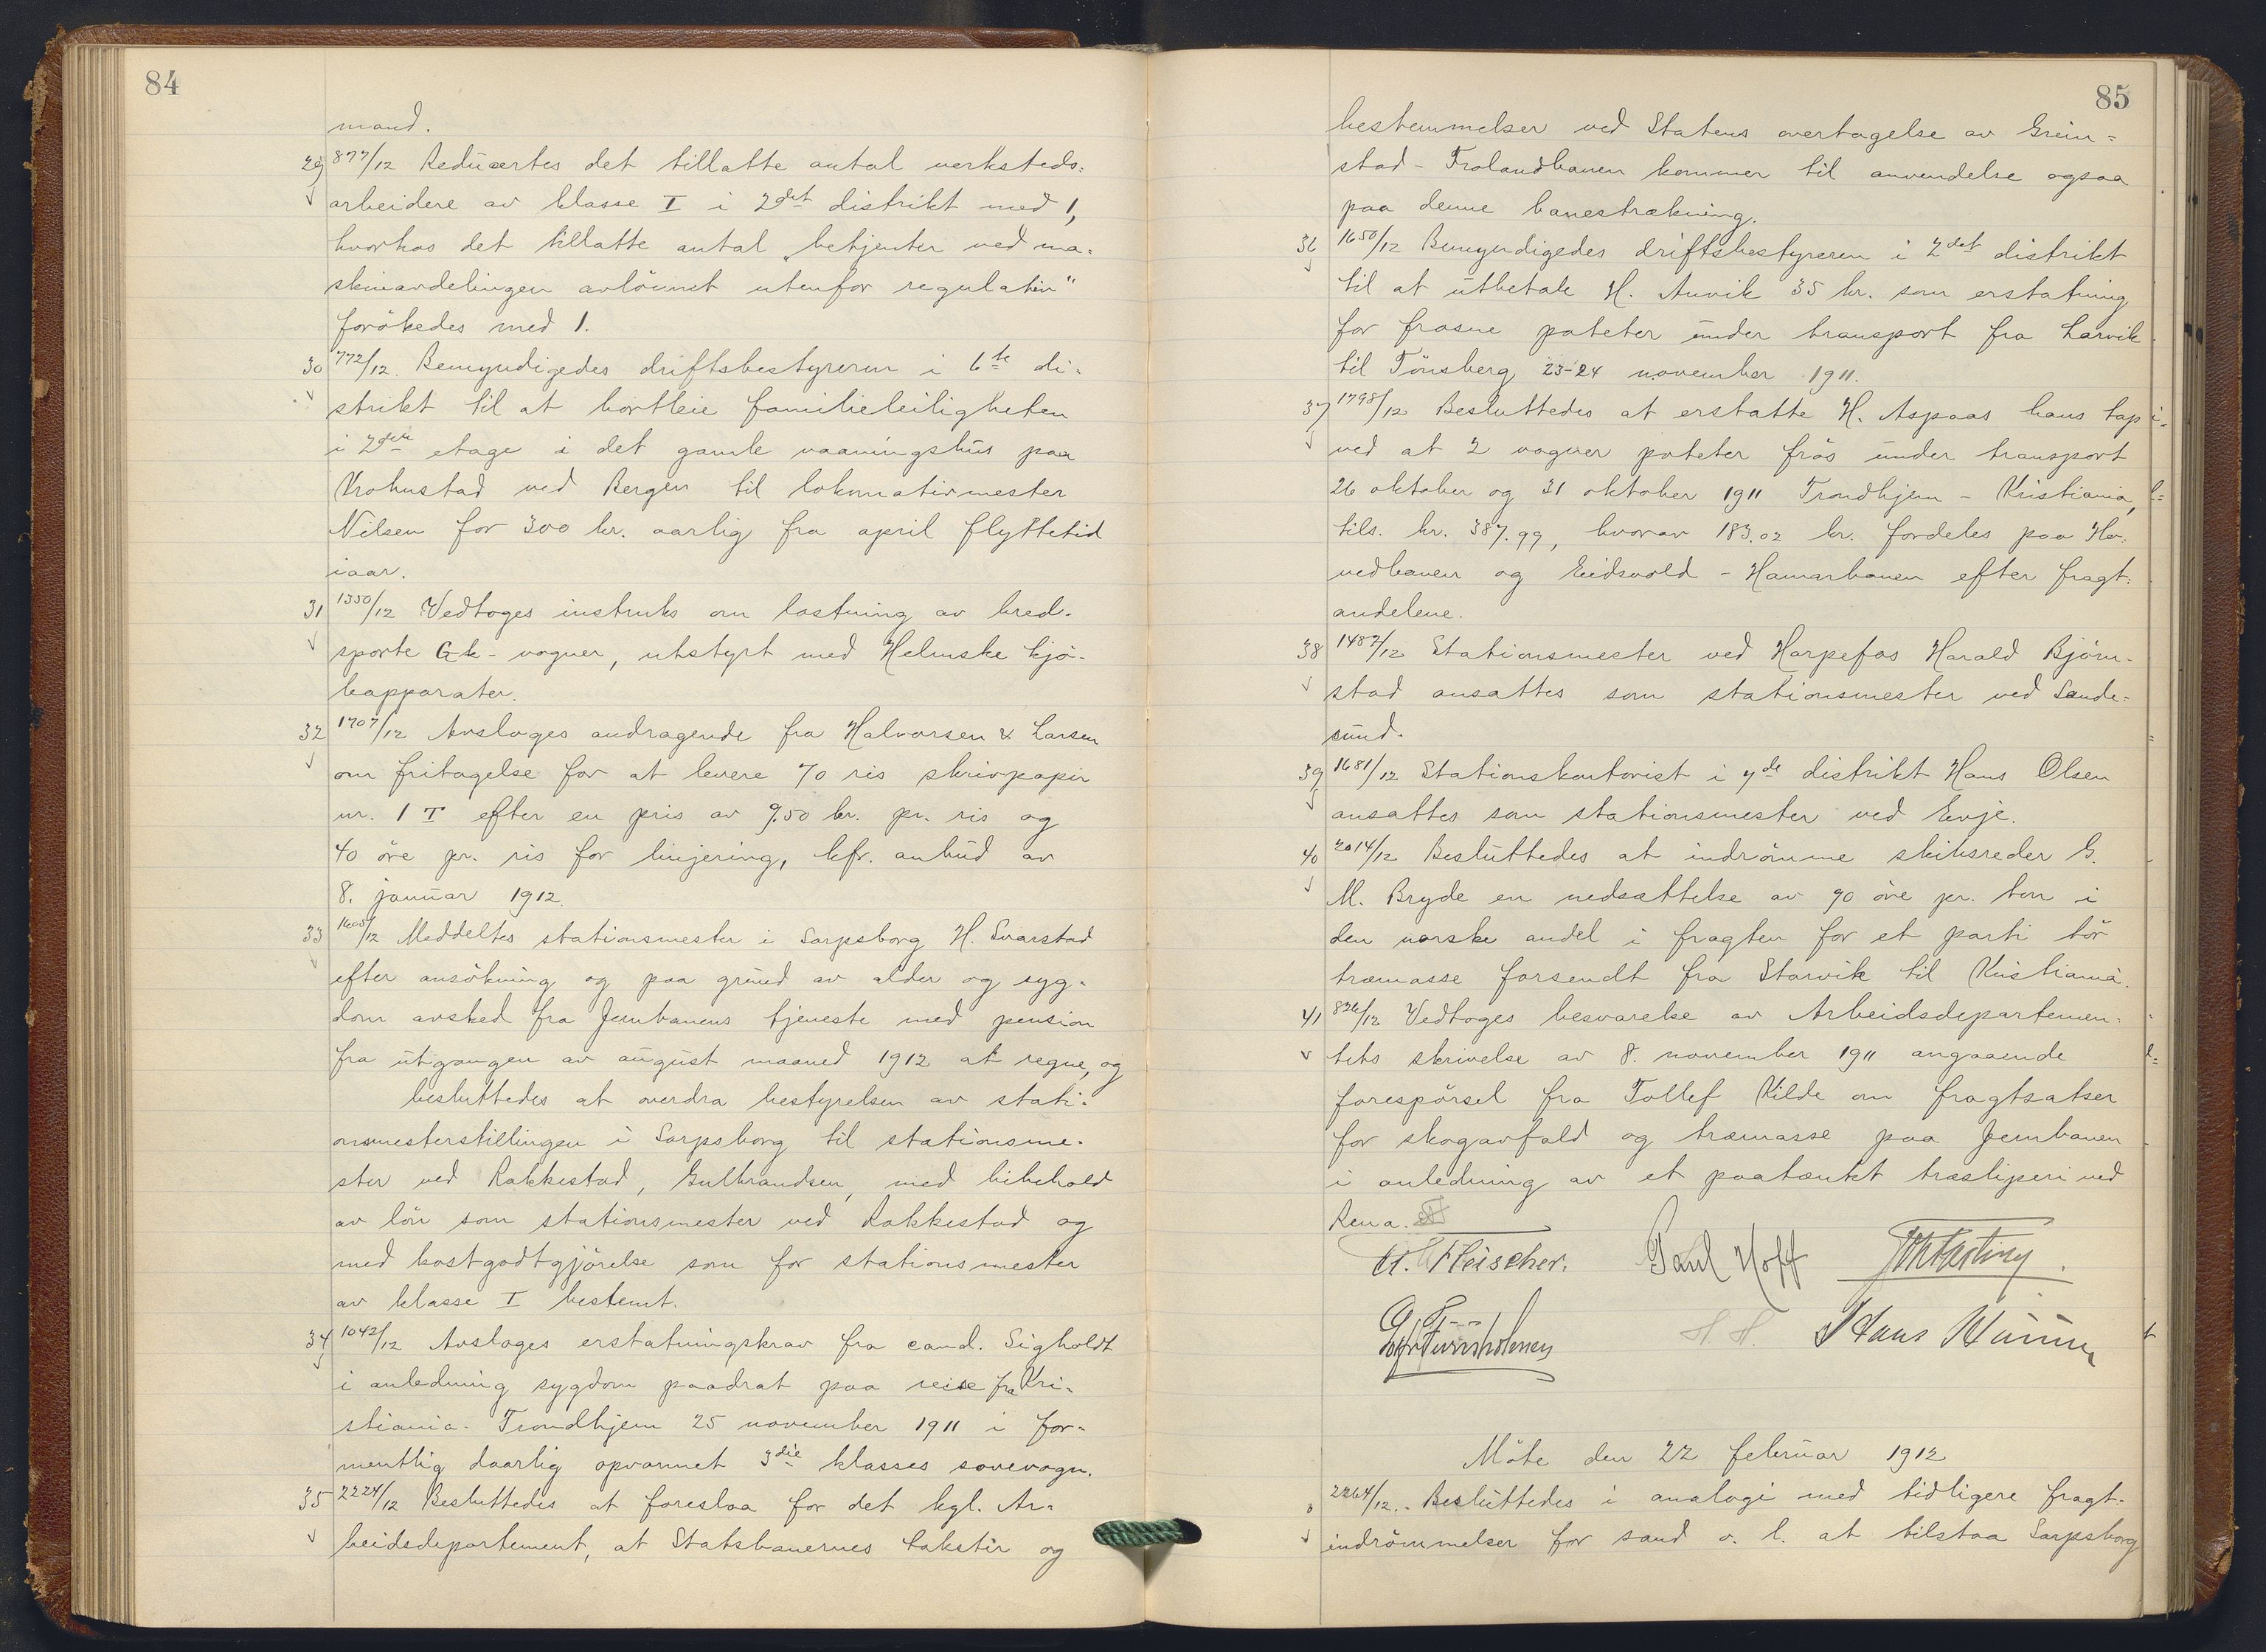 84
mand.
29 877/12 Reducertes det tillatte antal verksteds=
arbeidere av klasse I i 2det distrikt med 1,
hvorhos det tillatte antal „betjenter ved ma=
skinavdelingen avlönnet utenfor regulativ"
forökedes med 1.
30 772/12. Bemyndigedes driftsbestyreren i 6te di=
strikt til at bortleie familieleiligheten
i 2den etage i det gamle vaaningshus paa
Krohnstad ved Bergen til lokomotivmester
Nilsen for 300 kr. aarlig fra april flyttetid
iaar.
31 1350/12 Vedtoges instruks om lastning av bred=
sporte Gk-vogner, utstyrt med Helmske kjö=
leapparater.
32 1707/12 Avsloges andragende fra Halvorsen & Larsen
om fritagelse for at levere 70 ris skrivpapir
nr. 1 I efter en pris av 9.50 kr. pr. ris og
40 öre pr. ris for linjering, kfr. anbud av
8. januar 1912.
33 1605/12 Meddeltes stationsmester i Sarpsborg H. Svarstad
efter ansökning og paa grund av alder og syg=
dom avsked fra Jernbanens tjeneste med pension
fra utgangen av august maaned 1912 at regne, og
besluttedes at overdra bestyrelsen av stati=
onsmesterstillingen i Sarpsborg til stationsme=
ster ved Rakkestad, Gulbrandsen, med bibehold
av lön som stationsmester ved Rakkestad og
med kostgodtgjörelse som for stationsmester
av klasse I bestemt.
34 1042/12 Avsloges erstatningskrav fra cand. Sigholdt
i anledning sygdom paadrat paa reise fra Kri=
stiania-Trondhjem 25 november 1911 i for=
mentlig daarlig opvarmet 3die klasses sovevogn.
35 2224/12 Besluttedes at foreslaa for det kgl. Ar=
beidsdepartement, at Statsbanernes takster og
85
bestemmelser ved Statens overtagelse av Grim=
stad-Frolandbanen kommer til anvendelse ogsaa
paa denne banestrækning.
36 1650/12 Bemyndigedes driftsbestyreren i 2det distrikt
til at utbetale H. Anvik 35 kr. som erstatning
for frosne poteter under transport fra Larvik
til Tönsberg 23-24 november 1911.
37 1798/12 Besluttedes at erstatte H. Aspaas hans tap
ved at 2 vogner poteter frös under transport
26 oktober og 31 oktober 1911 Trondhjem - Kristiania,
tils. kr. 387.99, hvorav 183.02 kr. fordeles paa Ho=
vedbanen og Eidsvold-Hamarbanen efter fragt=
andelene.
38 1487/12 Stationsmester ved Harpefos Harald Björn=
stad ansattes som stationsmester ved Sande=
sund.
39 1681/12 Stationskontorist i 7de distrikt Hans Olsen
ansattes som stationsmester ved Evje.
40 2014/12 Besluttedes at indrömme skibsreder G.
M. Bryde en nedsættelse av 90 öre pr. ton i
den norske andel i fragten for et parti tör
træmasse forsendt fra Storvik til Kristiania.
41 826/12 Vedtoges besvarelse av Arbeidsdepartemen=
tets skrivelse av 8. november 1911 angaaende
forespörsel fra Tollef Kilde om fragtsatser
for skogavfald og træmasse paa Jernbanen
i anledning av et paatænkt træsliperi ved
Rena.
U. Fleischer. Paul Hoff
H. H. Hans
Möte den 22 februar 1912
2264/12. Besluttedes i analogi med tidligere fragt=
indrömmelser for sand o. l. at tilstaa Sarpsborg